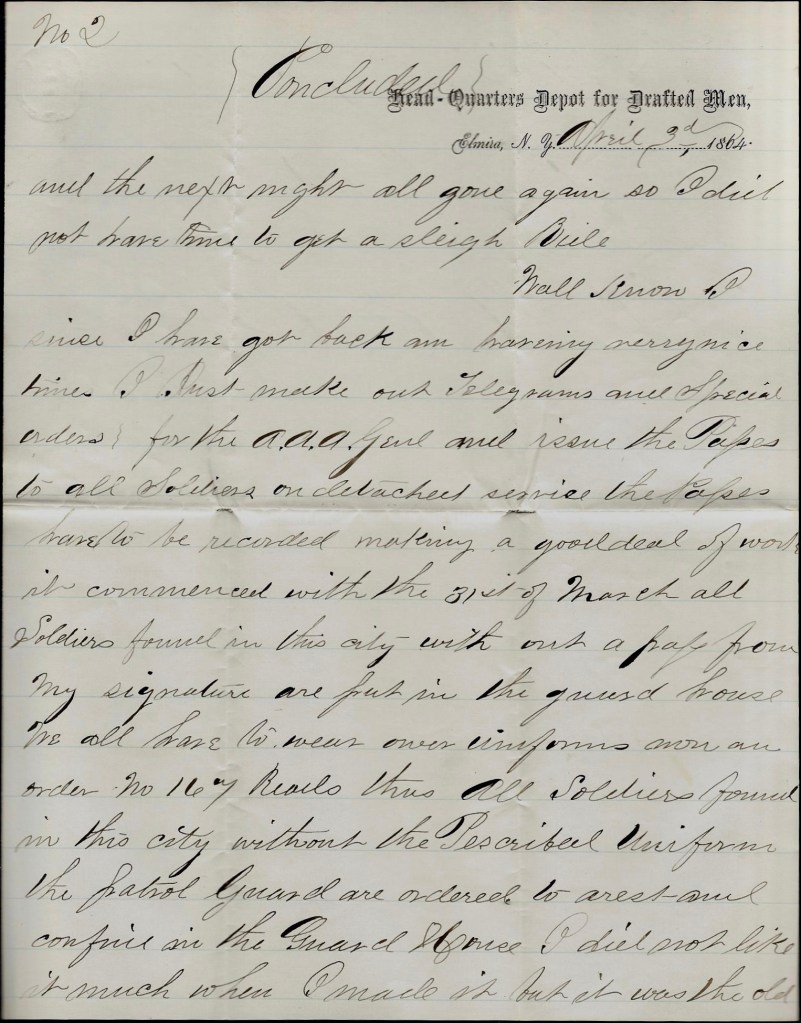 No 2
{Concluded}
Head-Quarters Depot for Drafted Men,
Elmira, N. Y. April 3d, 1864.
and the next night all gone again so I did
not have time to get a sleigh Ride
Wall Know I
since I have got back am haveing verry nice
times I Just make out Telegrams and Special
orders for the A.A.A. Genl and issue the Passes
to all Soldiers on detached service the Passes
have to be recorded making a good deal of work
it commenced with the 31st of March all
Soldiers found in this city with out a pass from
my signature are put in the guard house
We all have to wear ower uniforms now an
order No 167 Reads thus All Soldiers found
in this city without the Pescribed Uniform
the patrol Guard are ordered to arest and
confine in the Guard House I did not like
it much when I made it but it was the old